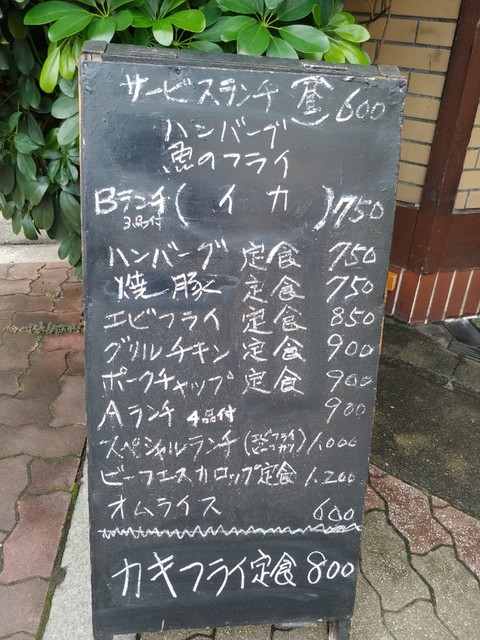 サービスランチ 昼 600
ハンバーグ
魚のフライ
Bランチ(イカ)750
3品付
ハンバーグ 定食 750
焼豚 定食 750
エビフライ 定食 850
グリルチキン 定食 900
ポークチャップ 定食 900
Aランチ 4品付 900
スペシャルランチ(エビフライ ビーフカツ)1,000
ビーフエスカロップ定食 1,200
オムライス 600
カキフライ定食 800